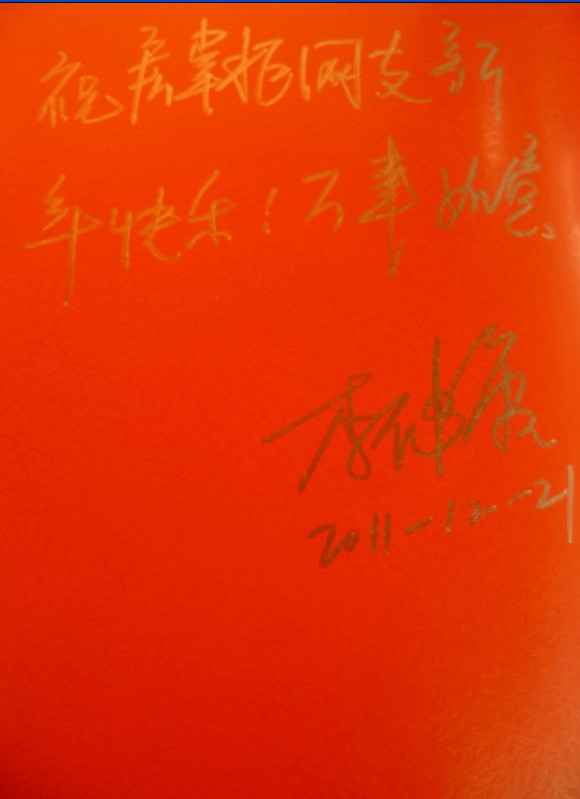 祝房掌柜网友新
年快乐！万事如意。
李伸
2011-12-21